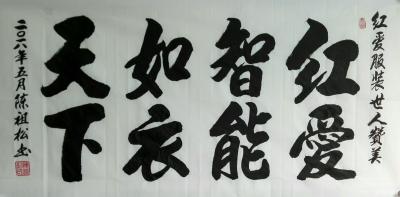 红爱服装世人赞美
红爱
智能
如衣
天下
二〇一八年五月陈祖松书